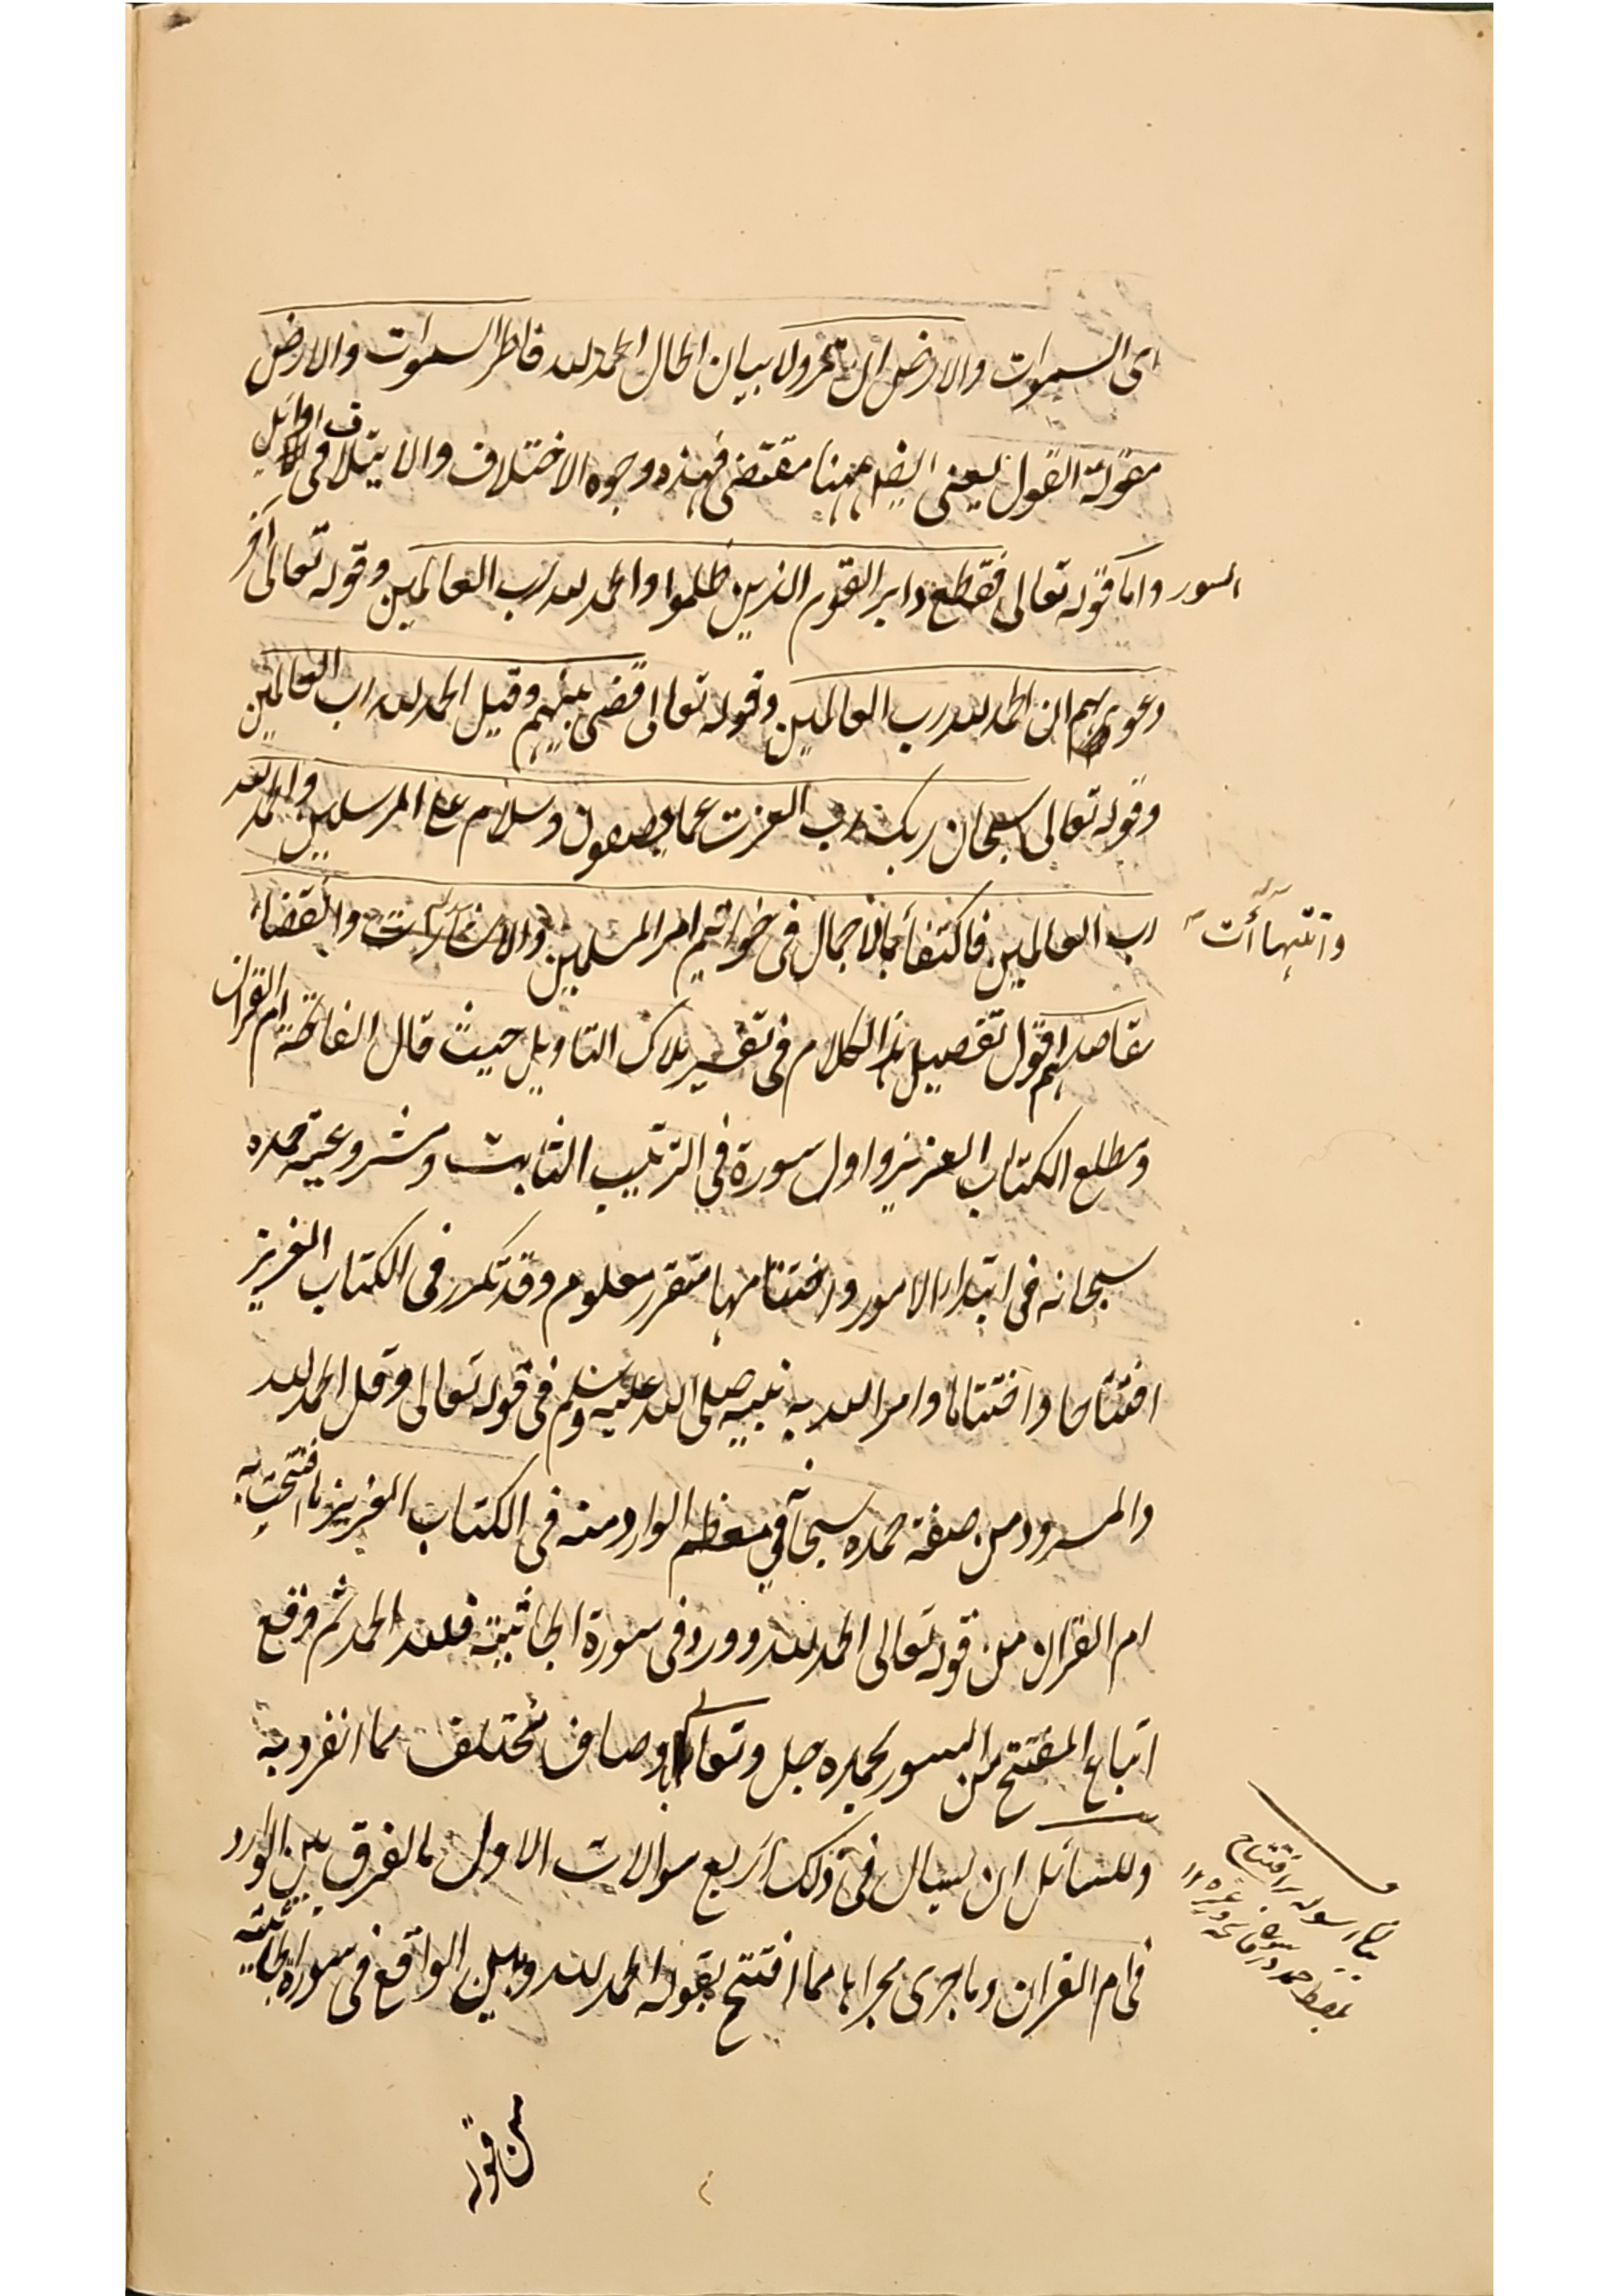 ای السموات والارض ان تمرولا ببیان الحال الحمد لله فاطر السموات والارض
مقولة القول یعنی ایضا ههنا مقتضی فهذه وجوه الاختلاف والایتلاف فی اوایل
السور واما قوله تعالی فقطع دابر القوم الذین ظلموا والحمد لله رب العالمین وقوله تعالی آخر
دعویهم ان الحمد لله رب العالمین وقوله تعالی قضی بینهم وقیل الحمد لله رب العالمین
وقوله تعالی سبحان ربک رب العزت عما یصفون وسلام علی المرسلین والحمد لله
رب العالمین فاکتفأ بالاجمال فی خواتیم امر المسلمین والاشارات وانقضاء
وانتهاآت
مقاصدهم اقول تفصیل هذا الکلام فی تفسیر ملاک التاویل حیث قال الفاتحة ام القران
ومطلع الکتاب العزیز واول سورة فی الترتیب الثابت ومشروعیة حمده
سبحانه فی ابتداء الامور واختتامها متقرر معلوم وقد تکرر فی الکتاب العزیز
افتتاحا واختتاما وامر الله به نبیه صلی الله علیه وسلم فی قوله تعالی وقل الحمد لله
والمسرود من صفة حمده سبحانه فی معظم الوارد منه فی الکتاب العزیز ما افتتحت به
ام القران من قوله تعالی الحمد لله وورد فی سورة الجاثیة فلله الحمد ثم وقع
اتباع المفتتح من السور بحمده جل وتعالی باوصاف تختلف مما انفرد به
وللسائل ان یسال فی ذلک اربع سوالات الاول ما الفرق بین الوارد
فی ام القران وما جری مجراها مما افتتح بقوله الحمد لله وبین الواقع فی سورة الجاثیة
من قوله